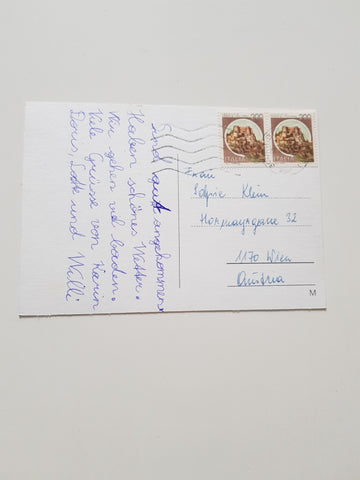 Sind gut angekommen
Haben schönes Wetter.
Wir gehen viel baden.
Viele Grüsse von Karin
Doris, und Willi
200 200
ITALIA ITALIA
Frau
Klein
32
1170 Wien
Austria
M